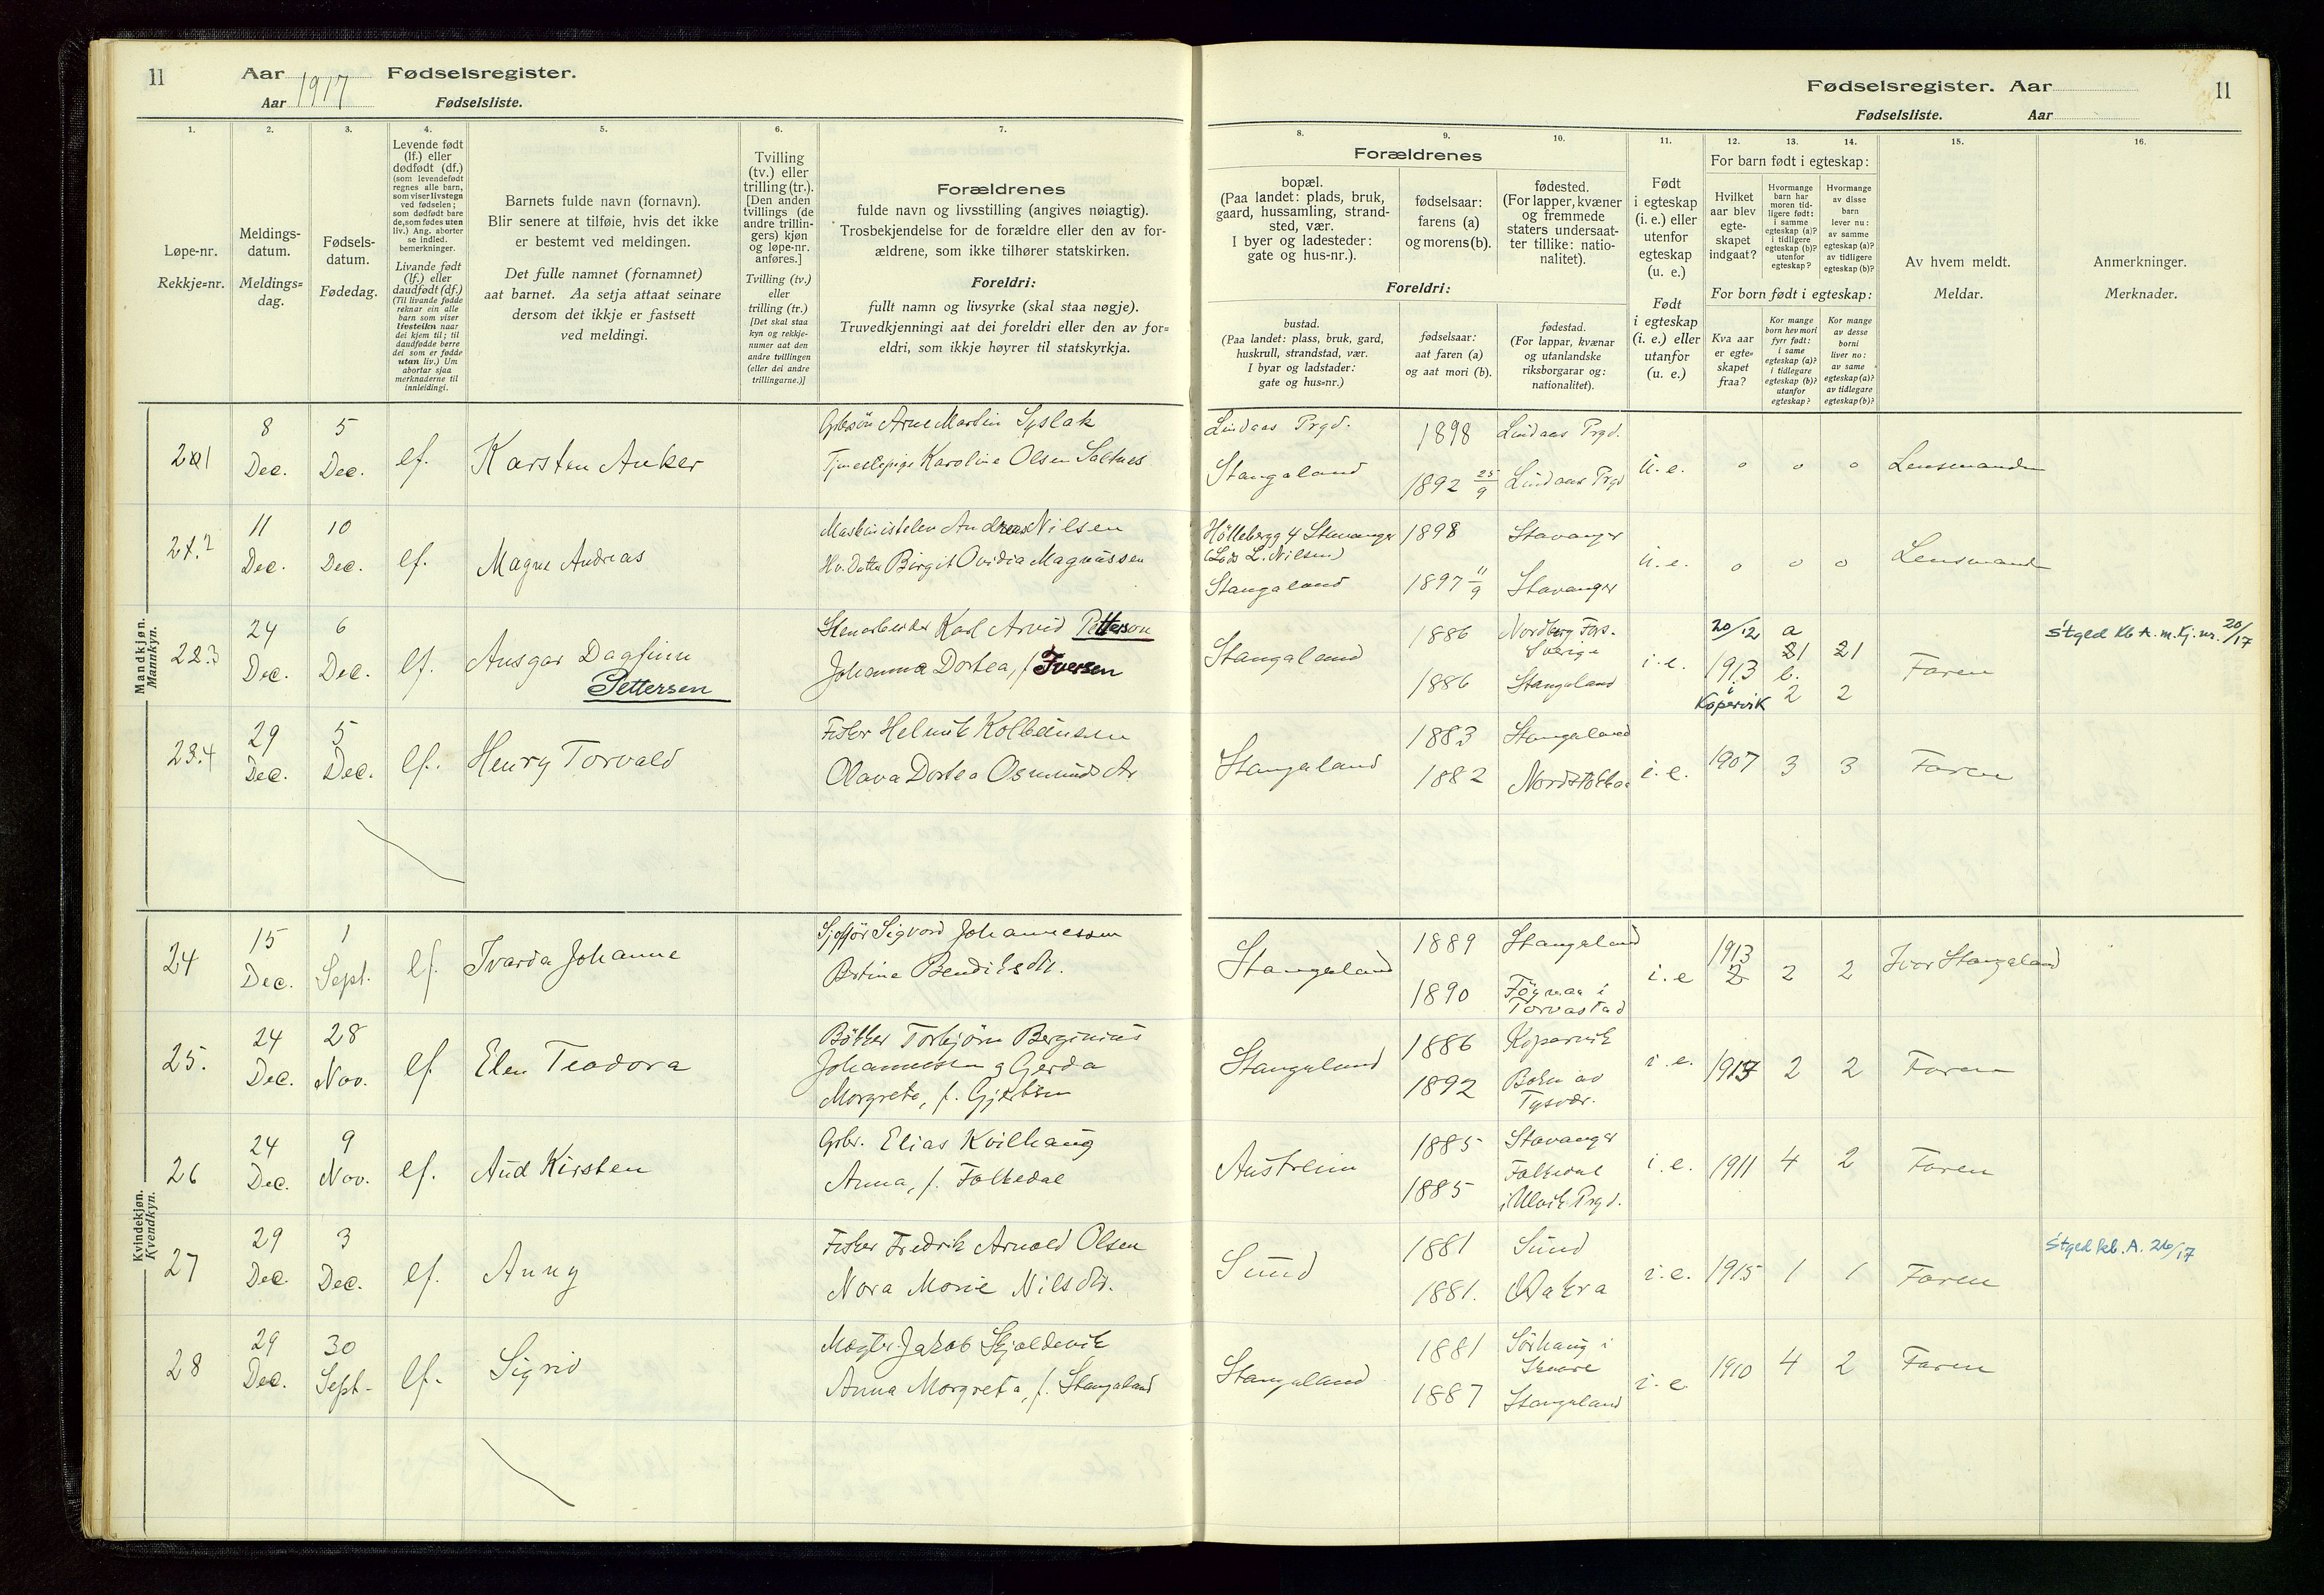 11
Aar 1917 Fødselsregister.
Aar Fødselsliste.
1.
2.
3.
4.
5.
6.
7.
Løpe-nr.
Rekkje-nr.
Meldings-
datum.
Meldings-
dag.
Fødsels-
datum.
Fødedag.
Levende født
(lf.) eller
dødfødt (df.)
(som levendefødt
regnes alle barn,
som viser livstegn
ved fødselen;
som dødfødt bare
de, som fødes uten
liv.) Ang. aborter
se indled.
bemerkninger.
Livande født
(lf.) eller
daudfødt (df.)
(Til livande fødde
reknar ein alle
barn som viser
livsteikn naar
dei kjem til; til
daudfødde berre
dei som er fødde
utan liv.) Um
abortar sjaa
merknaderne til
innleidingi.
Barnets fulde navn (fornavn).
Blir senere at tilføie, hvis det ikke
er bestemt ved meldingen.
Det fulle namnet (fornamnet)
aat barnet. Aa setja attaat seinare
dersom det ikkje er fastsett
ved meldingi.
Tvilling
(tv.) eller
trilling (tr.).
[Den anden
tvillings (de
andre trillin-
gers) kjøn
og løpe-nr.
anføres.]
Tvilling (tv.)
eller
trilling (tr.)
[Det skal staa
kyn og rekkje-
numer aat den
andre tvillingen
(eller dei andre
trillingarne.)]
Forældrenes
fulde navn og livsstilling (angives nøiagtig).
Trosbekjendelse for de forældre eller den av for-
ældrene, som ikke tilhører statskirken.
Foreldri:
fullt namn og livsyrke (skal staa nøgje).
Truvedkjenningi aat dei foreldri eller den av for-
eldri, som ikkje høyrer til statskyrkja.
Mandkjøn.
Mannkyn.
21
8
Dec.
5
Dec.
lf.
Karsten Anker
Gbrsøn Arne Martin Syslak
Tjenestepige Karoline Olsen Saltnes
2
11
Dec.
10
Dec.
lf.
Magne Andreas
Maskinistelev Andreas Nilsen
Hv. Datter Birgit Ovidia Magnussen
3
24
Dec.
6
Dec.
lf.
Ansgar Dagfinn
Pettersen
Stenarbeider Karl Arvid Petterson
Johanna Dortea, f. Iversen
4
29
Dec.
5
Dec.
lf.
Henry Torvald
Fisker Helmik Kolbeinsen
Olava Dortea Osmundsdtr
Kvindekjøn.
Kvendkyn.
24
15
Dec.
1
Sept.
lf.
Ivarda Johanne
Sigvard Johannessen
Bertine Bendiksdtr.
25.
24
Dec.
28
Nov.
lf
Elen Teodora
Bøtker Torbjørn Berginius
Johannesen og Gerda
Margrete, f. Gjertsen
26
24
Dec.
9
Nov.
lf.
Aud Kirsten
Gbr. Elias Kvilhaug
Anna, f. Folkedal
27
29
Dec.
3
Dec.
lf.
Anny
Fisker Fredrik Arnold Olsen
Nora Marie Nilsdtr.
28
29
Dec.
30
Sept.
lf.
Sigrid
Jakob Skjoldevik
Anna Margreta, f. Stangaland
Fødselsregister. Aar
11
Fødselsliste. Aar
8.
9.
10.
11.
12.
13.
14.
15.
16.
Forældrenes
bopæl.
(Paa landet: plads, bruk,
gaard, hussamling, strand-
sted, vær.
I byer og ladesteder:
gate og hus-nr.).
fødselsaar:
farens (a)
og morens (b).
fødested.
(For lapper, kvæner
og fremmede
staters undersaat-
ter tillike: natio-
nalitet).
Foreldri:
bustad.
(Paa landet: plass, bruk, gard,
huskrull, strandstad, vær.
I byar og ladstader:
gate og hus-nr.)
fødselsaar:
aat faren (a)
og aat mori (b).
fødestad.
(For lappar, kvænar
og utanlandske
riksborgarar og:
nationalitet).
Født
i egteskap
(i. e.) eller
utenfor
egteskap
(u. e.)
Født
i egteskap
(i. e.) eller
utanfor
(u. e.)
For barn født i egteskap:
Hvilket
aar blev
egte-
skapet
indgaat?
Hvormange
barn har
moren tid-
ligere født:
i samme
egteskap (a)?
i tidligere
egteskap (b)?
utenfor
egteskap?
Hvormange
av disse
barn
lever nu:
av samme
egteskap (a)?
av tidligere
egteskap (b)?
For born født i egteskap:
Kva aar
er egte-
skapet
fraa?
Kor mange
born hev mori
fyrr født:
i same
egteskap (a)?
i tidlegare
egteskap (b)?
utanfor
egteskap?
Kor mange
av desse
borni
liver no:
av same
egteskap (a)?
av tidlegare
egteskap (b)?
Av hvem meldt.
Meldar.
Anmerkninger.
Merknader.
Lindaas Prgd.
Stangaland
1898
1892 25/9
Lindaas Prgd.
Lindaas Prgd
u. e.
o
o
o
Lensmanden
4 Stavanger
(Lods L. Nilsen)
Stangaland
1898
1897 11/9
Stavanger
Stavanger
u. e.
o
o
o
Lensmand
Stangaland
1886
1886
Nordberg Fors.
Sverige
Stangaland
i. e.
20/12
1913
i
Kopervik
a
1
b.
2
1
2
Faren
Stged Kb A. m. Kj. nr. 20/17
Stangaland
1883
1882
Stangaland
i. e.
1907
3
3
Faren
Stangaland
1889
1890
Stangeland
Føynaa i
Torvastad
i. e
1913
2
2
2
Ivar Stangeland
Stangeland
1886
1892
Kopervik
Boken av
Tysvær.
i. e.
2
2
Faren
Austreim
1885
1885
Stavanger
Folkedal
i Ulvik Prgd.
i. e.
1911
4
2
Faren
Sund
1881
1881.
Sund
Aakra
i. e.
1915
1
1
Faren
Stged kb. A. 26/17
Stangaland
1881
1887
Sørhaug i
Skaare
Stangeland
i. e
1910
4
2
Faren